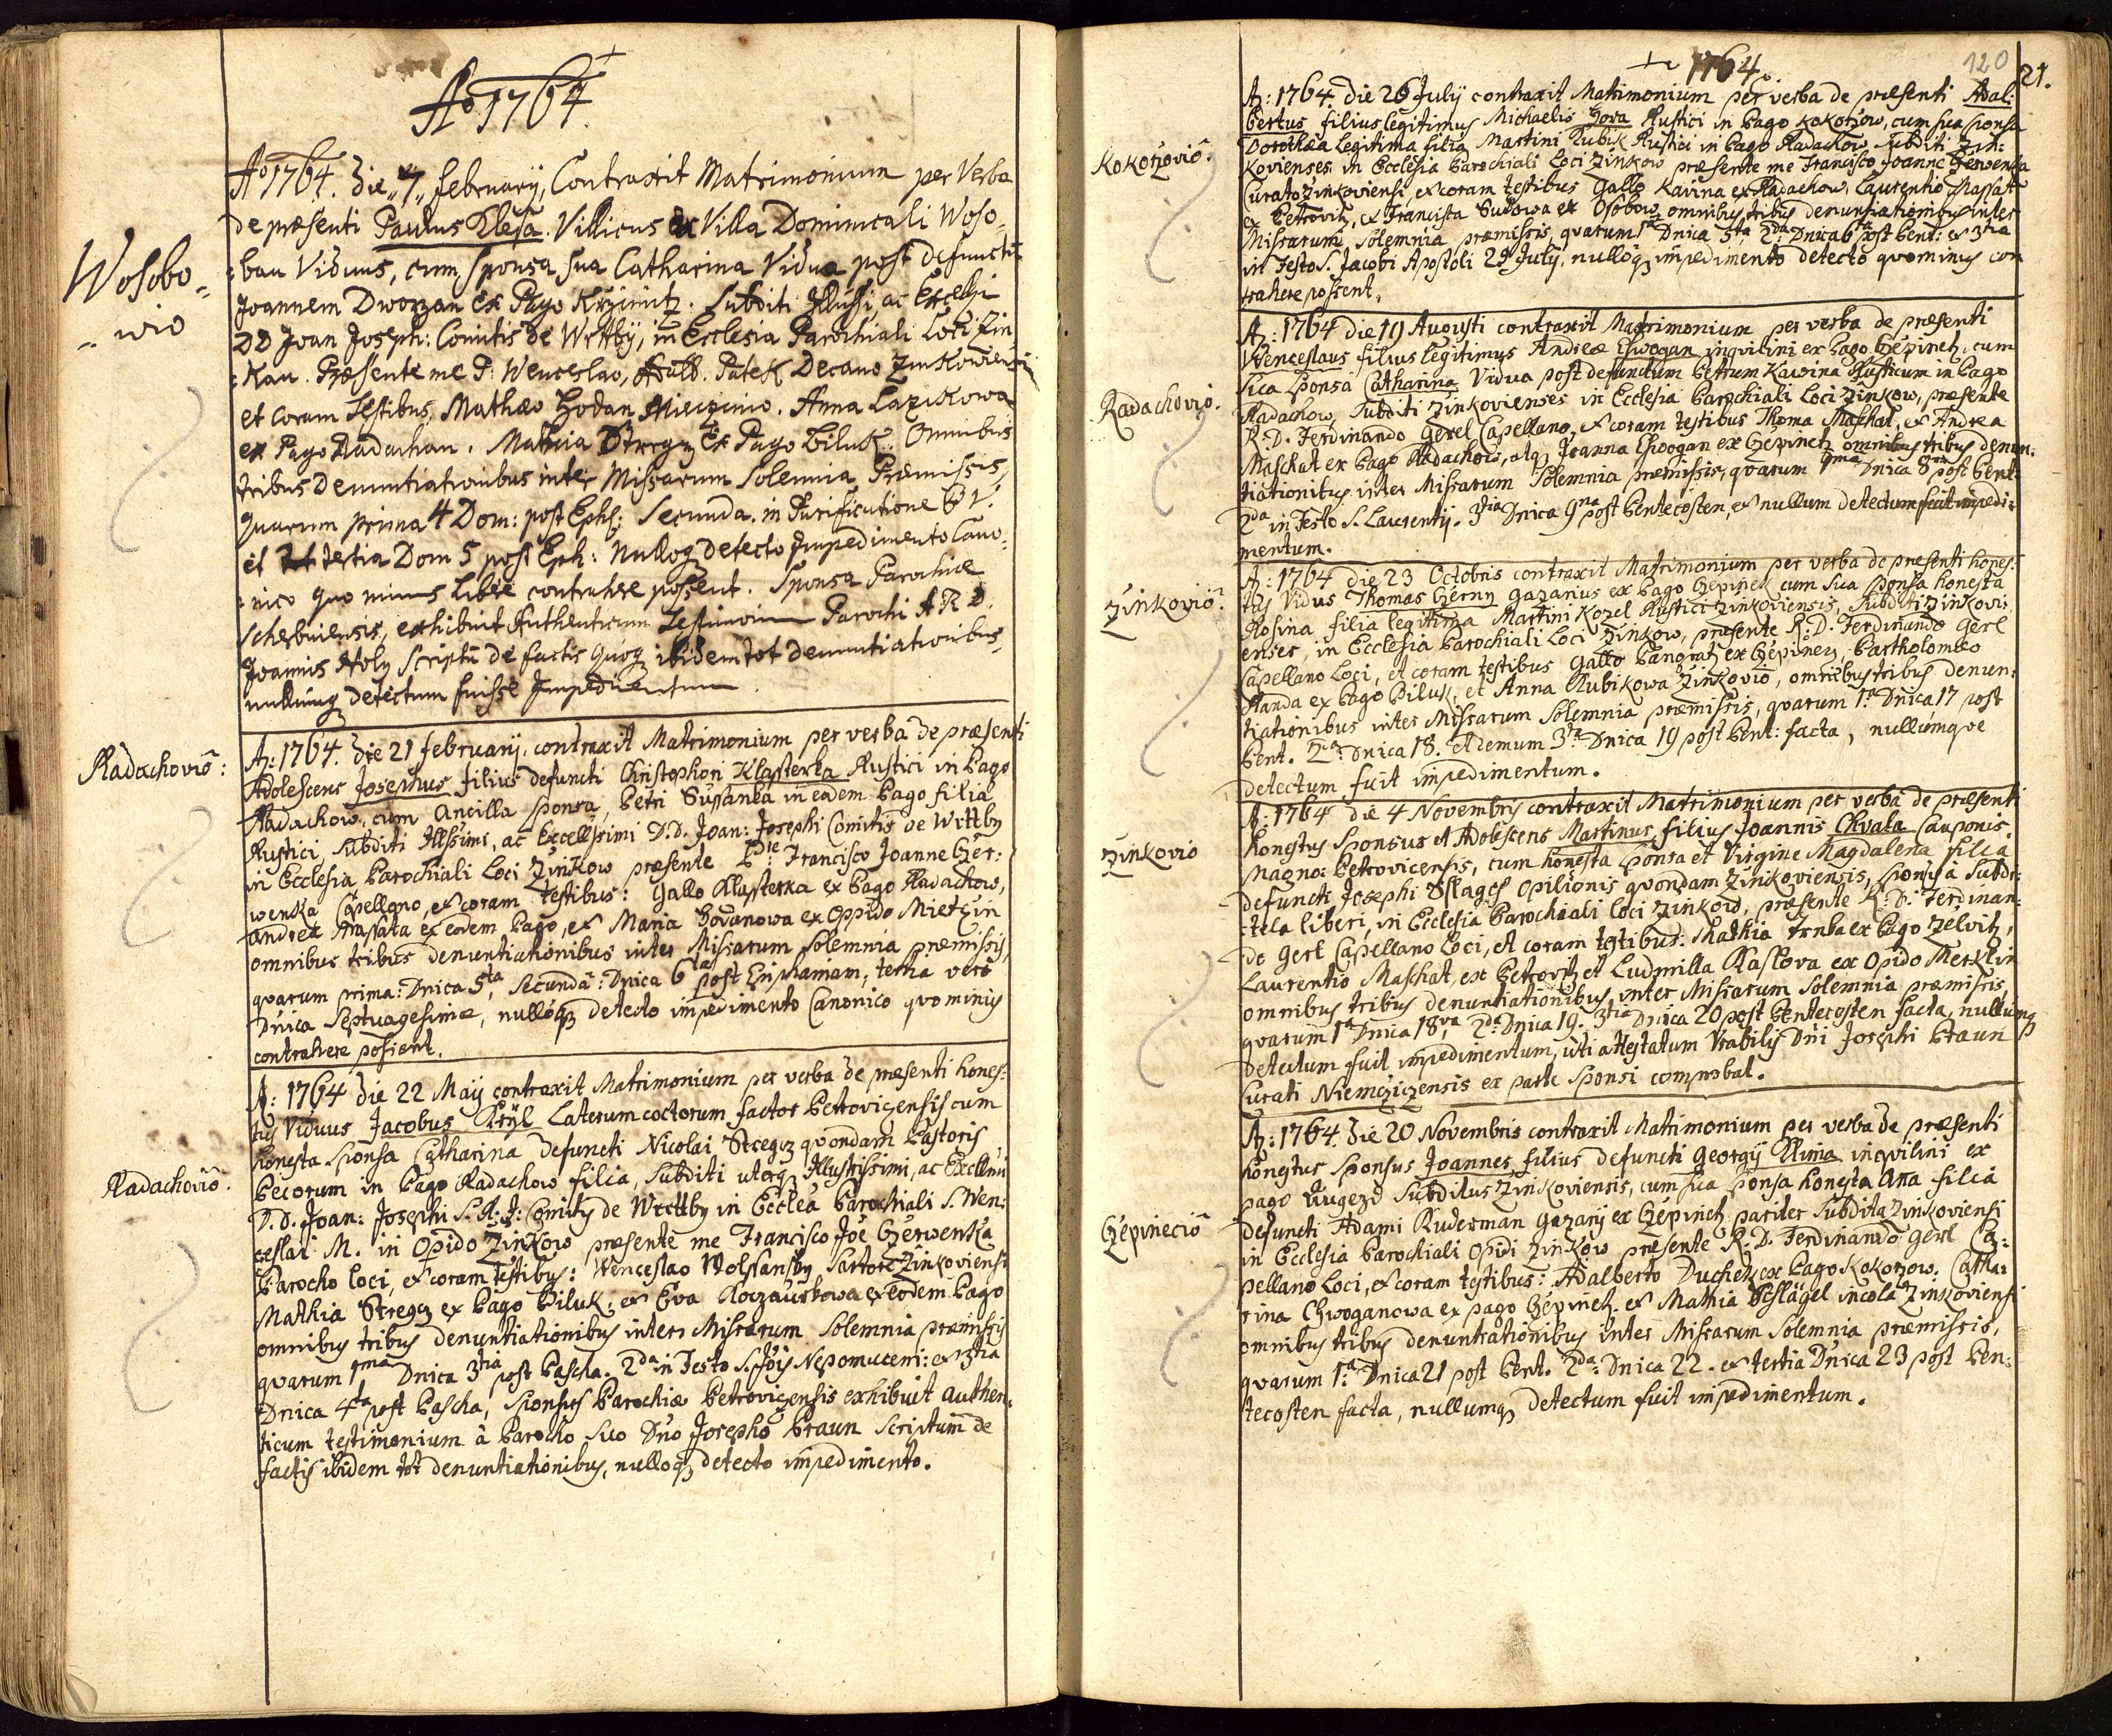 Ao 1764
Wosobo=
=wio
Ao 1764. Die „7„ februarÿ, Contraxit Matrimonium per Verba
de præsenti Paulus Klesa. Villicus ex Villa Dominicali Woso=
=bau Viduus, cum Sponsa Sua Catharina Vidua post defunctū
Joannem Dworzan ex Pago Krzimitz. Subditi Illussi, ac Excelsi
DD Joan Joseph: Comitis de Wrttbÿ, in Ecclesia Parochiali Loci Zin
=kau. Præsente me P. Wenceslao, Patek Decano Zinkowiensi
et Coram Testibus, Mathæo Hodan Miecizinio. Anna Lazikowa
ex Pago Radachau. Mathia Stregz Ex Pago Biluk. Omnibus
tribus Denuntiationibus inter Missarum Solennia Præmissis,
quarum prima 4 Dom: post Eph: Secunda. in Purificatione B V.
et tertia Dom 5 post Eph: Nulloq detecto Impedimento Cano=
=nico quo minus Libere contrahere possent. Sponsa Parochiæ
exhibuit Authenticum Testimonium Parochi A R D.
Joannis Holy Scriptū de factis quoq ibidem tot denuntiationibus,
nullumq detectum fuisse Impedimentum.
Radachoviō:
A: 1764. Die 21 februarÿ contraxit Matrimonium per verba de præsenti
Adolescens Josephus filius defuncti Christophori Klasterka Rustici in Pago
Radachow, cum Ancilla Sponsa, Petri Sussanka in eodem Pago filia
Rustici, Subditi Illssimi, ac Excellssimi D.D. Joan: Josephi Comitis de Wrttby
in Ecclesia Parochiali Loci Zinkow præsente Francisco Joanne Czer:
wenka Capellano, et coram testibus: Gallo Klasterka ex Pago Radachow,
Andrea Massata ex eodem Pago, et Maria Hodanowa ex Oppido Mietzin
omnibus tribus denuntiationibus inter Missarum Solemnia præmissis,
quarum prima: Dnica 5ta, Secunda: Dnica 6ta post Epiphaniam, tertia vero
Dnica Septuagesimæ, nulloq detecto impedimento Canonico quominus
contrahere possent.
Radachoviō.
A: 1764 Die 22 Maÿ contraxit Matrimonium per verba de præsenti hones=
tus Viduus Jacobus Prÿl Laterum coctorum factor Petrovicensis cum
honesta Sponsa Catharina Defuncti Nicolai Stregz quondam Pastoris
Pecorum in Pago Radachow filia, Subditi uterq Illustrissimi, ac Excellmi
D.D. Joan: Josephi S.R.J: Comitis de Wrttby in Ecclea Parochiali S. Wen:
ceslai M. in Opido Zinkow præsente me Francisco Joe Czerwenka
Parocho loci, et coram testibus: Wenceslao Wolssansky Sartore Zinkoviensi
Mathia Stregz ex Pago Piluk, et Eva Koczaurkowa ex eodem Pago
omnibus tribus denuntiationibus inters Missarum Solemnia præmissis
quarum 1ma Dnica 3tia post Pascha. 2da in Festo S. Jois Nepomuceni: et 3tia
Dnica 4ta post Pascha, Sponsus Parochiæ Petrovicensis exhibuit authen:
ticum testimonium à Parocho Suo Dno Josepho Braun Scriptum de
factis ibidem tot denuntiationibus, nulloq detecto impedimento.
1764.
120
21.
Kokorzoviō.
A: 1764. die 26 Julÿ contraxit Matrimonium per verba de præsenti Adal:
bertus filius legitimus Michaelis Hora Rustici in Pago Kokorzow, cum sua Sponsa
Dorothæa legitima filia Martini Kubik Rustici in Pago Radachow, Subditi Zin:
kovienses in Ecclesia Parochiali Loci Zinkow præsente me Francisco Joanne Czerwenka
Curato Zinkoviensi, et coram testibus Gallo Kavina ex Radachow, Laurentio Massat
ex Petrovitz, et Francisca Sudowa ex Osobow, omnibus tribus denuntiationibus inter
Missarum Solemnia præmissis, quarum 1a Dnica 5ta 2da Dnica 6ta post Pent: et 3tia
in Festo S. Jacobi Apostoli 25 Julÿ, nulloq impedimento detecto quominus con
trahere possent.
Radachoviō.
A: 1764 die 19 Augusti contraxit Matrimonium per verba de præsenti
Wenceslaus filius legitimus Andreæ Chwogan inqvilini ex Pago Czepinetz, cum
sua Sponsa Catharina Vidua post defunctum Petrum Kawina Rusticum in Pago
Radachow, Subditi Zinkovienses in Ecclesia Parochiali Loci Zinkow, præsente
R.D. Ferdinando Gerel Capellano, et coram testibus Thoma Maschat, et Andrea
Maschat ex Pago Radachow, atq Joanna Chwogan ex Czepinetz omnibus tribus denun:
tiationibus inter Missarum Solemnia præmissis, quarum 1ma Dnica 8va post Pent:
2da in Festo S. Laurentÿ. 3tia Dnica 9na post Pentecosten, et nullum detectum fuit impedi:
mentum.
Zinkoviō.
A: 1764 die 23 Octobris contraxit Matrimonium per verba de præsenti hones:
tus Vidus Thomas Czerny Gazarius ex Pago Czepinetz cum sua Sponsa honesta
Rosina filia legitima Martini Kozel Rustici Zinkoviensis, Subditi Zinkovi
enses, in Ecclesia Parochiali Loci Zinkow, præsente R.D. Ferdinando Gerl
Capellano Loci, et coram testibus Gallo Pangratz ex Czepinez, Bartholomeo
Randa ex Pago Piluk, et Anna Kubikowa Zinkovio, omnibus tribus denun:
tiationibus inter Missarum Solemnia præmissis, quarum 1a Dnica 17 post
Pent. 2da Dnica 18. et demum 3ta Dnica 19 post Pent: facta, nullumque
detectum fuit impedimentum.
Zinkovio
A: 1764 die 4 Novembris contraxit Matrimonium per verba de præsenti
honestus Sponsus et Adolescens Martinus filius Joannis Chvata Cauponis
Magno: Petrovicensis, cum honesta Sponsa et Virgine Magdalena filia
defuncti Josephi Opilionis quondam Zinkoviensis, Sponsi à Subdi:
:tela liberi, in Ecclesia Parochiali loci Zinkow, præsente R: D: Ferdinan:
do Gerl Capellano Loci, et coram testibus: Mathia Trnka ex Pago Zelvitz,
Laurentio Maschat, ex Petrovitz et Ludmilla Raslova ex Opido Merklin
omnibus tribus denuntiationibus inter Missarum Solemnia præmissis,
quarum 1a Dnica 18va 2da Dnica 19. 3tia Dnica 20 post Pentecosten facta, nullumq
detectum fuit impedimentum, uti attestatum Vrabilis Dni Josephi Braun
Curati Niemcziczensis ex parte Sponsi comprobat.
Czepineciō
A: 1764 Die 20 Novembris contraxit Matrimonium per verba de præsenti
honestus Sponsus Joannes filius defuncti Georgÿ Klima inqvilini ex
pago Augezd Subditus Zinkoviensis, cum sua Sponsa honesta Ana filia
defuncti Adami Ruderman Gazarÿ ex Czepinetz pariter Subdita Zinkoviensi
in Ecclesia Parochiali Opidi Zinkow præsente R. D. Ferdinando Gerl Ca:
pellano Loci, et coram testibus: Adalberto Duchek ex Pago Kokorzow. Catha:
rina Chwoganowa ex pago Czepinetz et Mathia incola Zinkoviensi
omnibus tribus denuntiationibus inter Missarum Solemnia præmissis,
quarum 1a Dnica 21 post Pent. 2da Dnica 22. et tertia Dnica 23 post Pen:
tecosten facta, nullumq detectum fuit impedimentum.